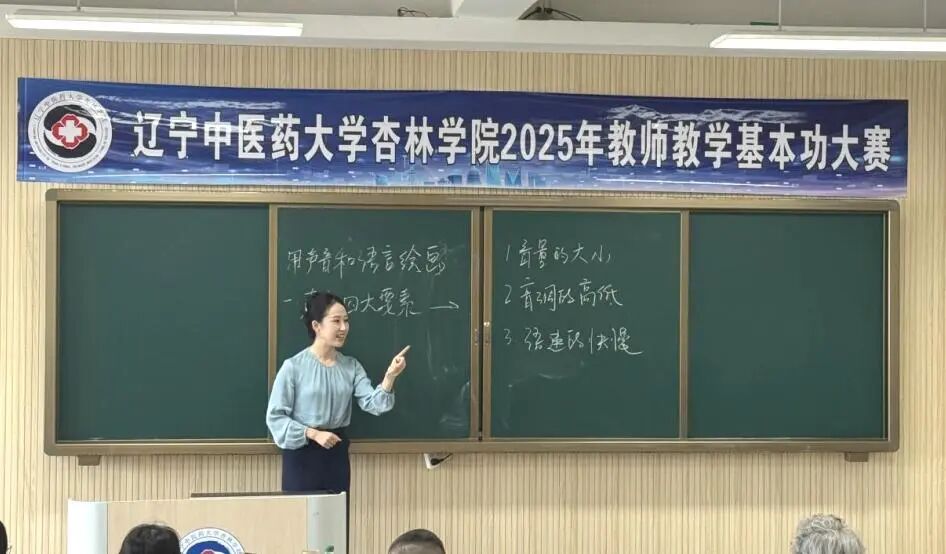 辽宁中医药大学杏林学院2025年教师教学基本功大赛
用声音和语言绘画
一 四大要素 →
1 音量的大小
2 音调的高低
3 语速的快慢